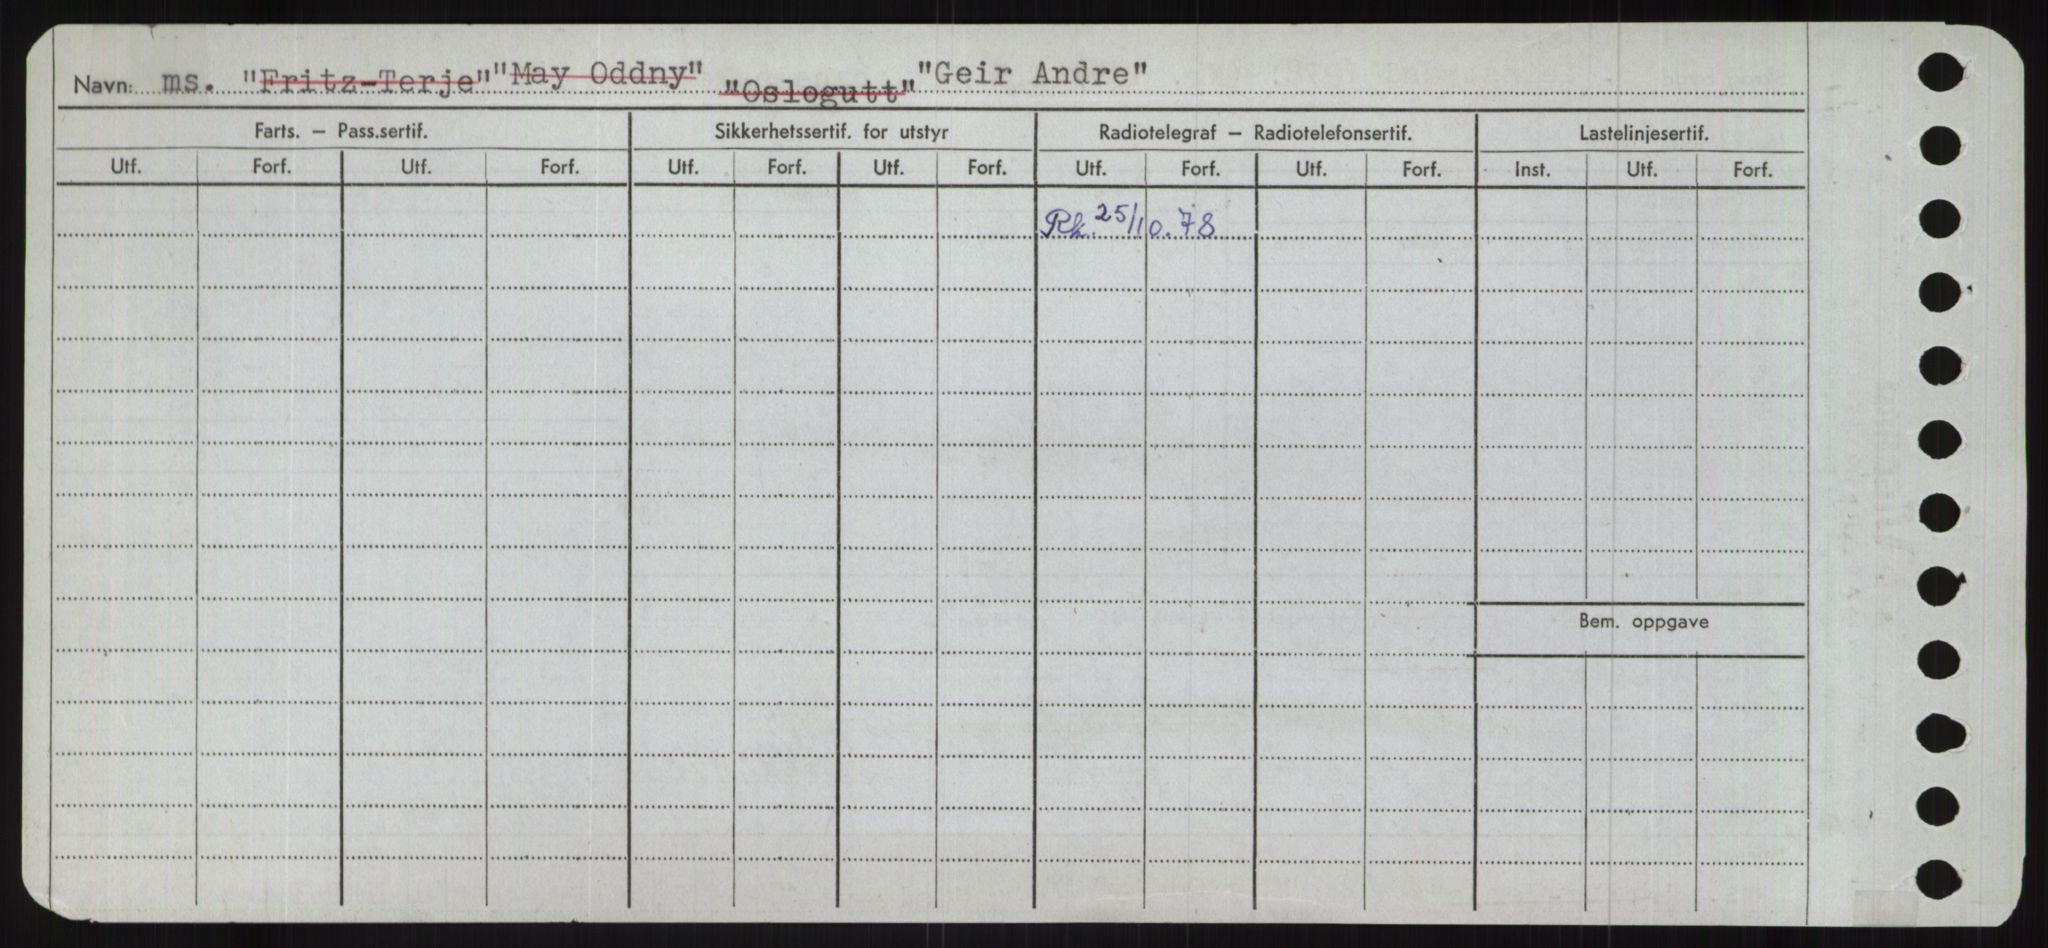 Navn: ms. "Fritz-Terje" "May Oddny" "Oslogutt" "Geir Andre"
Farts. – Pass.sertif. Sikkerhetssertif. for utstyr Radiotelegraf – Radiotelefonsertif. Lastelinjesertif.
Utf. Forf. Utf. Forf. Utf. Forf. Utf. Forf. Utf. Forf. Utf. Forf. Inst. Utf. Forf.
Rk. 25/10.78
Bem. oppgave